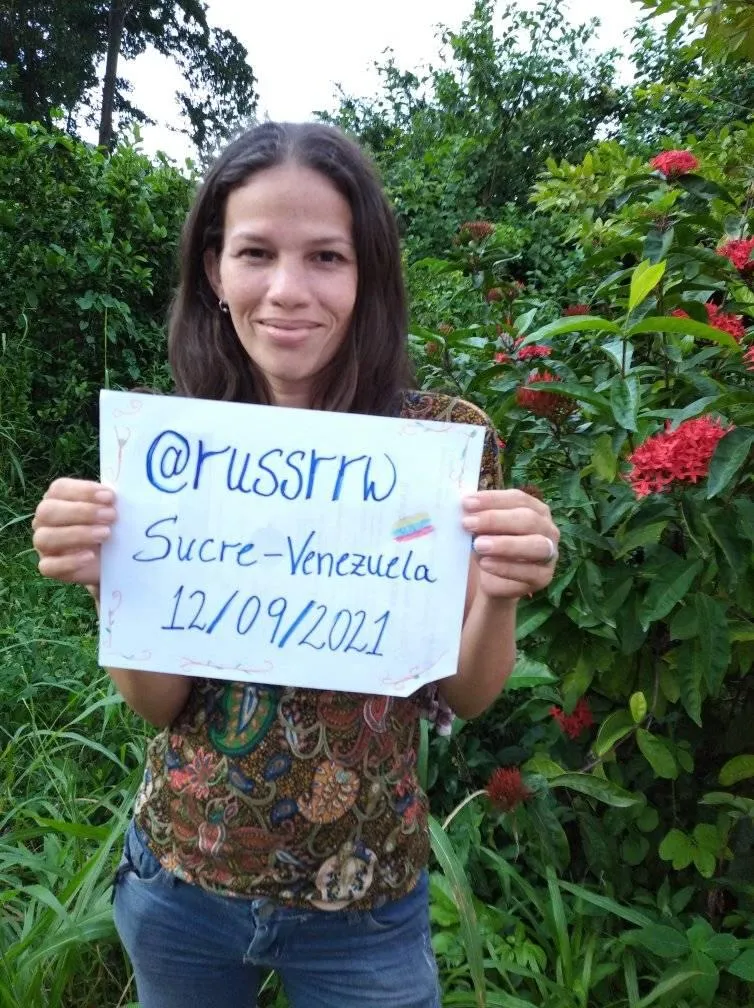 @russrrw
Sucre-Venezuela
12/09/2021